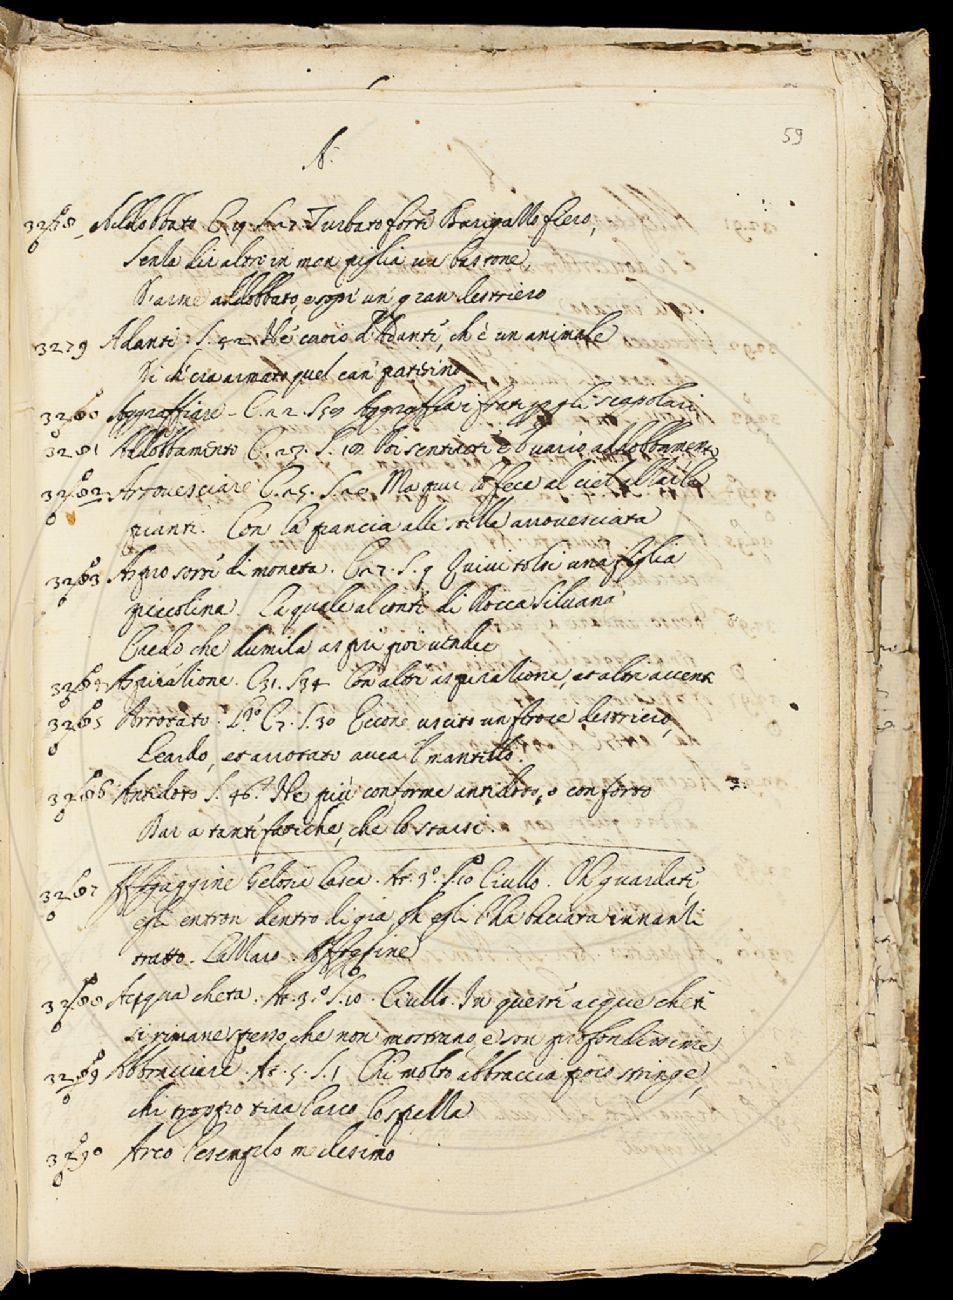 59
A.
3278 Addobbato C. 19. S. 27. Turbato forte Barigallo fiero,
Senza dir altro in man piglia un bastone
D'arme addobbato, e sopr' un gran destriero
3279 Adanti: S. 42. Né cuoio d'Adanti, ch'è un animale
Di ch'era armato quel can
3280 Aggraffiare. C. 22. S. 59 Aggraffia i frati gli scapolari
3281 Addobbamento C. 23. S. 19. Poi sentirete vario addobbamento
3282 Arrovesciare C. 25. S. 20. Ma qui si fece al ciel
pianti. Con la pancia alle stelle arrovesciata
3283 Aspro sorte di moneta. C. 27. S. 9 Quivi tolsi una figlia
piccolina. La quale al conte di Rocca Silvana
Credo che dumila aspri poi vendei
3284 Aspirazione. C. 31. S. 34 Con altri aspirazione, et altri accenti
3285 Arrotato. C. 7. S. 30 uscito un feroce destriero,
Leardo, et arrotato avea 'l mantello.
3286 Antidoto S. 46. Né più conforme antidoto, o conforto
Dar a tante fatiche, che lo scarsi
3287 Gelosia Lasca. At. 3.º S. 10 Ciullo. Oh guardate
egli entron dentro di già oh egli l'ha baciata innanzi
tratto. Lazzaro.
3288 Acqua cheta. At. 3.º S. 10. Ciullo. In queste acque chete
si rimane spesso, che non mostrano, e son profondissime
3289 Abbracciare. At. 5. S. 1 Chi molto abbraccia poco stringe,
chi troppo tira l'arco, lo spezza
3290 Arco l'esempio medesimo